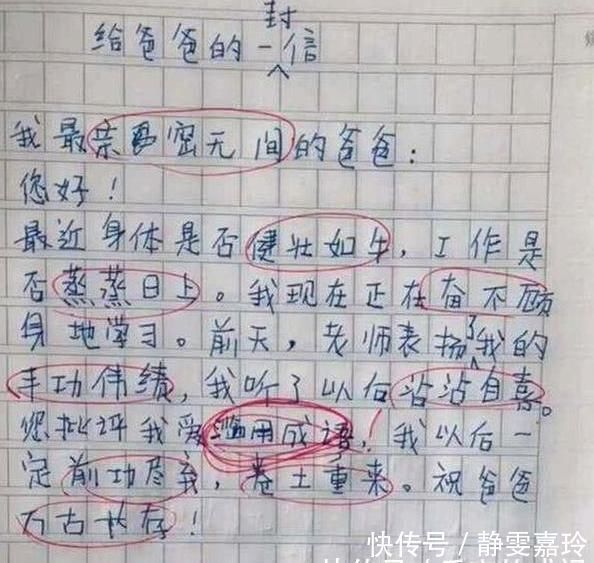 给爸爸的一封信
我最亲密无间的爸爸：
您好！
最近身体是否健壮如牛，工作是
否蒸蒸日上。我现在正在奋不顾
身地学习。前天，老师表扬了我的
丰功伟绩，我听了以后沾沾自喜。
您批评我爱滥用成语，我以后一
定前功尽弃，卷土重来。祝爸爸
万古长存！
快传号／静雯嘉玲